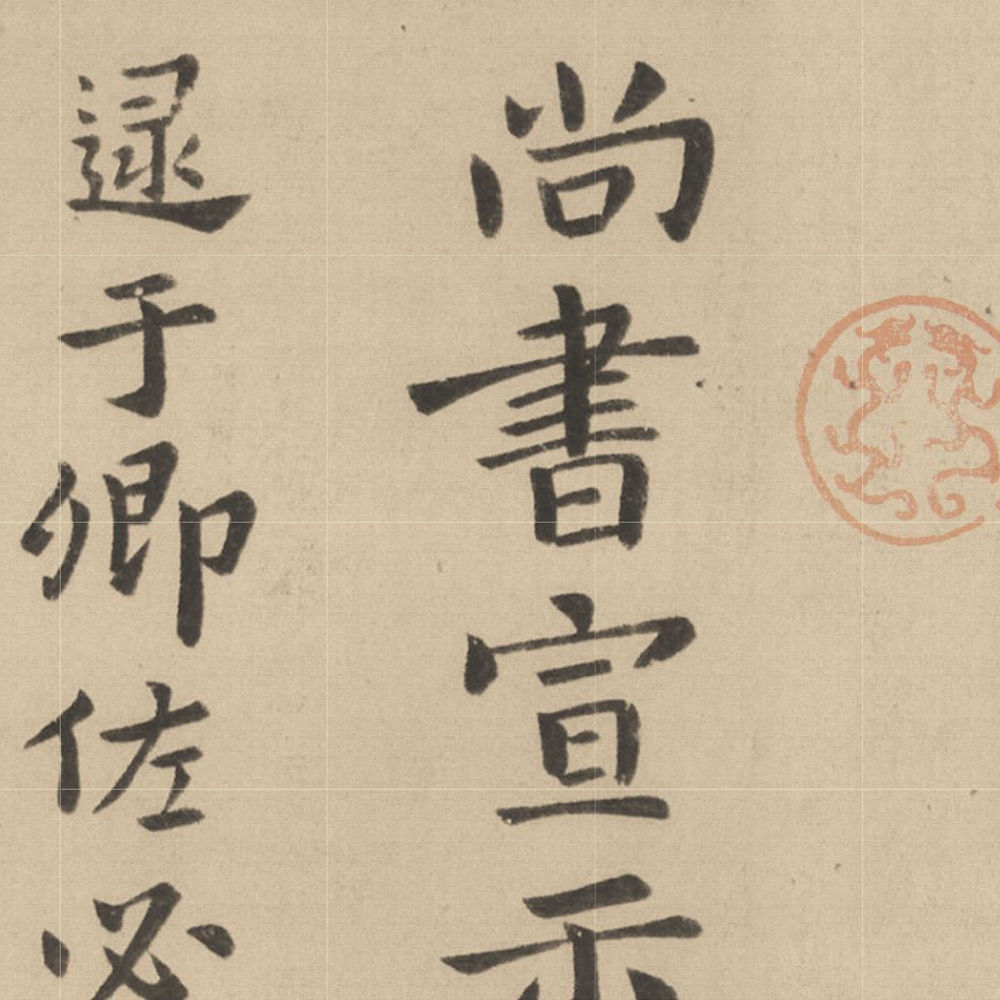 尚書宣示
逯于卿佐必